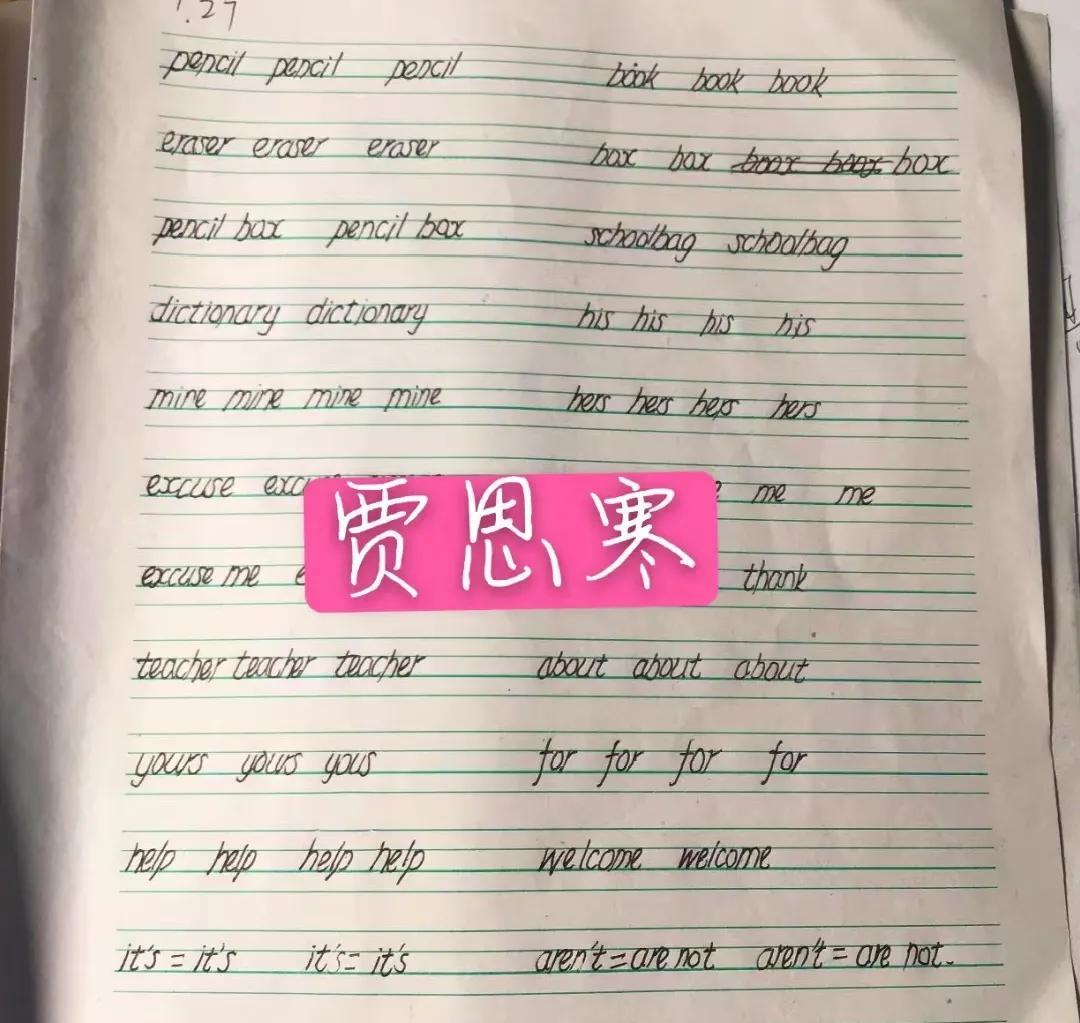 1.27
pencil pencil pencil book book book
eraser eraser eraser box box boox boox box
pencil box pencil box schoolbag schoolbag
dictionary dictionary his his his his
mine mine mine mine hers hers hers hers
excuse me me
贾思寒
excuse me thank
teacher teacher teacher about about about
yours yours yous for for for for
help help help help welcome welcome
it's = it's it's= it's aren't = are not aren't = are not.